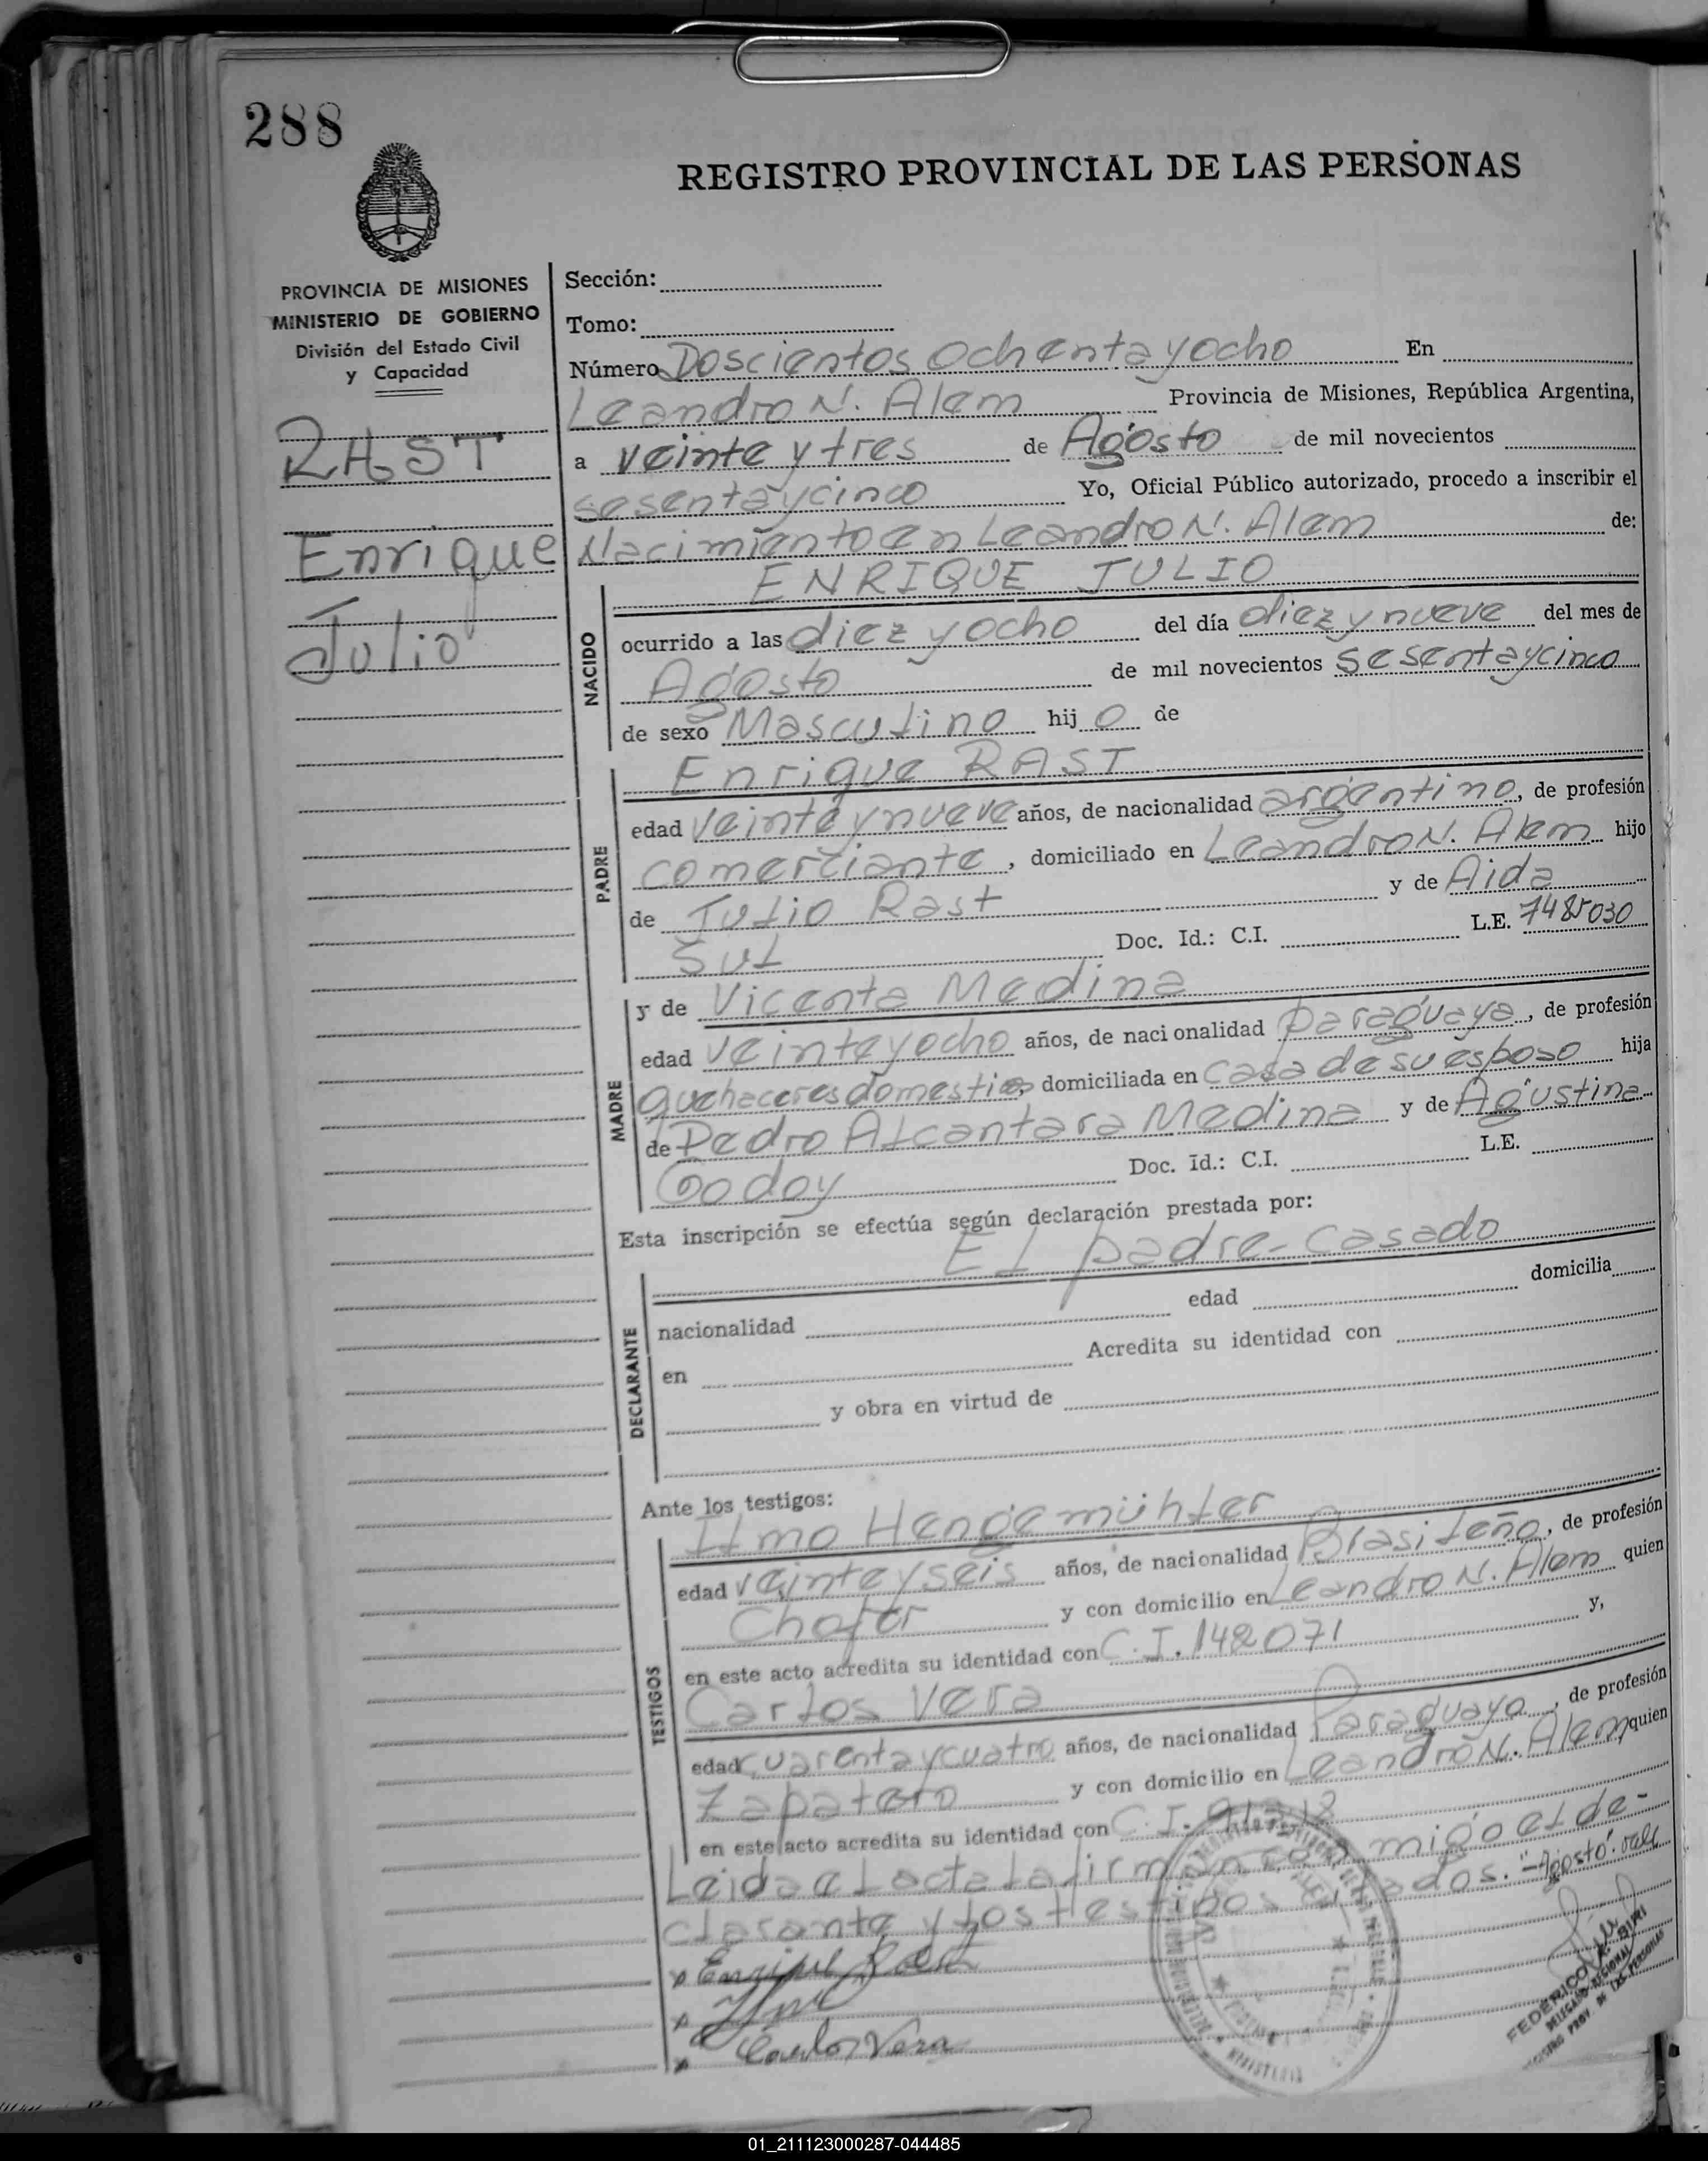 288
REGISTRO PROVINCIAL DE LAS PERSONAS
PROVINCIA DE MISIONES
MINISTERIO DE GOBIERNO
División del Estado Civil
y Capacidad
RAST
Enrique
Julio
Sección:
Tomo:
Número Doscientos ochenta y ocho En
Leandro N. Alem Provincia de Misiones, República Argentina,
a veinte y tres de Agosto de mil novecientos
sesenta y cinco Yo, Oficial Público autorizado, procedo a inscribir el
Nacimiento en Leandro N. Alem de:
ENRIQUE JULIO
NACIDO
ocurrido a las diez y ocho del día diez y nueve del mes de
Agosto de mil novecientos sesenta y cinco
de sexo Masculino hijo de
Enrique RAST
PADRE
edad veinte y nueve años, de nacionalidad argentino, de profesión
comerciante, domiciliado en Leandro N. Alem hijo
de Julio Rast y de Aida
Sul Doc. Id.: C.I. L.E. 7485030
MADRE
y de Vicenta Medina
edad veinte y ocho años, de nacionalidad paraguaya, de profesión
quehaceres domesticos, domiciliada en casa de su esposo hija
de Pedro Alcantara Medina y de Agustina
Godoy Doc. Id.: C.I. L.E.
Esta inscripción se efectúa según declaración prestada por:
El padre-casado
DECLARANTE
nacionalidad edad domicilia
en Acredita su identidad con
y obra en virtud de
Ante los testigos:
TESTIGOS
Ilmo Hengemühler
edad veinte y seis años, de nacionalidad Brasileño, de profesión
Chofer y con domicilio en Leandro N. Alem quien
en este acto acredita su identidad con C.I. 142071 y,
Carlos Vera
edad cuarenta y cuatro años, de nacionalidad Paraguayo, de profesión
Zapatero y con domicilio en Leandro N. Alem quien
en este acto acredita su identidad con C.I.
Leida el acta la firman con migo el de-
clarante y los testigos citados.-"Agosto" vale
Enrique Rast
Carlos Vera
FEDERICO
DELEGADO REGIONAL
PROV. DE LAS PERSONAS
01_211123000287-044485